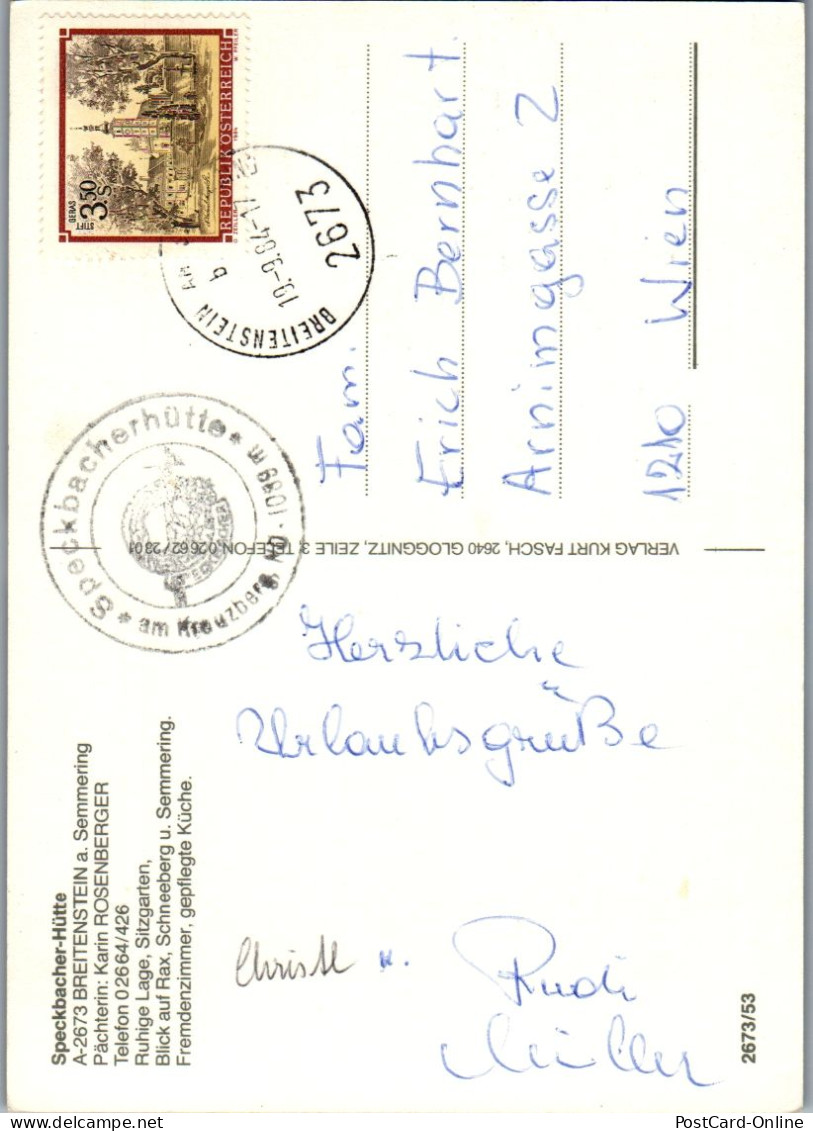 Speckbacher-Hütte
A-2673 BREITENSTEIN a. Semmering
Pächterin: Karin ROSENBERGER
Telefon 02664/426
Ruhige Lage, Sitzgarten,
Blick auf Rax, Schneeberg u. Semmering.
Fremdenzimmer, gepflegte Küche.
Herzliche
Urlaubsgrüße
Christl u. Rudi
Müller
2673/53
VERLAG KURT FASCH, 2640 GLOGGNITZ, ZEILE 3, TELEFON 02662/2301
Speckbacherhütte * 1089 m
* am Kreuzberg, NÖ
STIFT GERAS
3.50 S
REPUBLIK ÖSTERREICH
2673
19.-9.84-17
BREITENSTEIN AM
b
Fam.
Erich Bernhart
Arnimgasse 2
1210 Wien
PostCard-Online